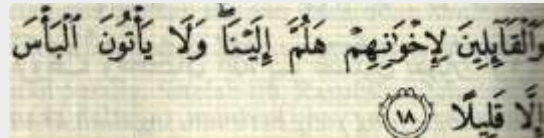 وَٱلْقَآئِلِينَ لِإِخْوَٰنِهِمْ هَلُمَّ إِلَيْنَا ۖ وَلَا يَأْتُونَ ٱلْبَأْسَ
إِلَّا قَلِيلًا ﴿١٨﴾